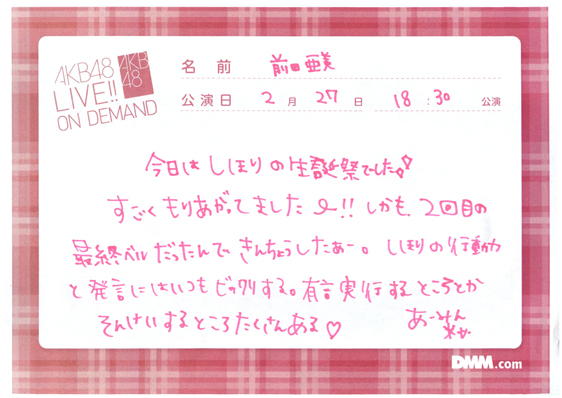 AKB48
LIVE!!
ON DEMAND
AKB
48
名前 前田亜美
公演日 2月27日 18:30 公演
今日はしほりの生誕祭でした!
すごくもりあがってました〜!! しかも、2回目の
最終ベルだったんで、きんちょうしたぁー。しほりの行動力
と発言にはいつもビックリする。有言実行するところとか
そんけいするところたくさんある♡ あーみん
DMM.com